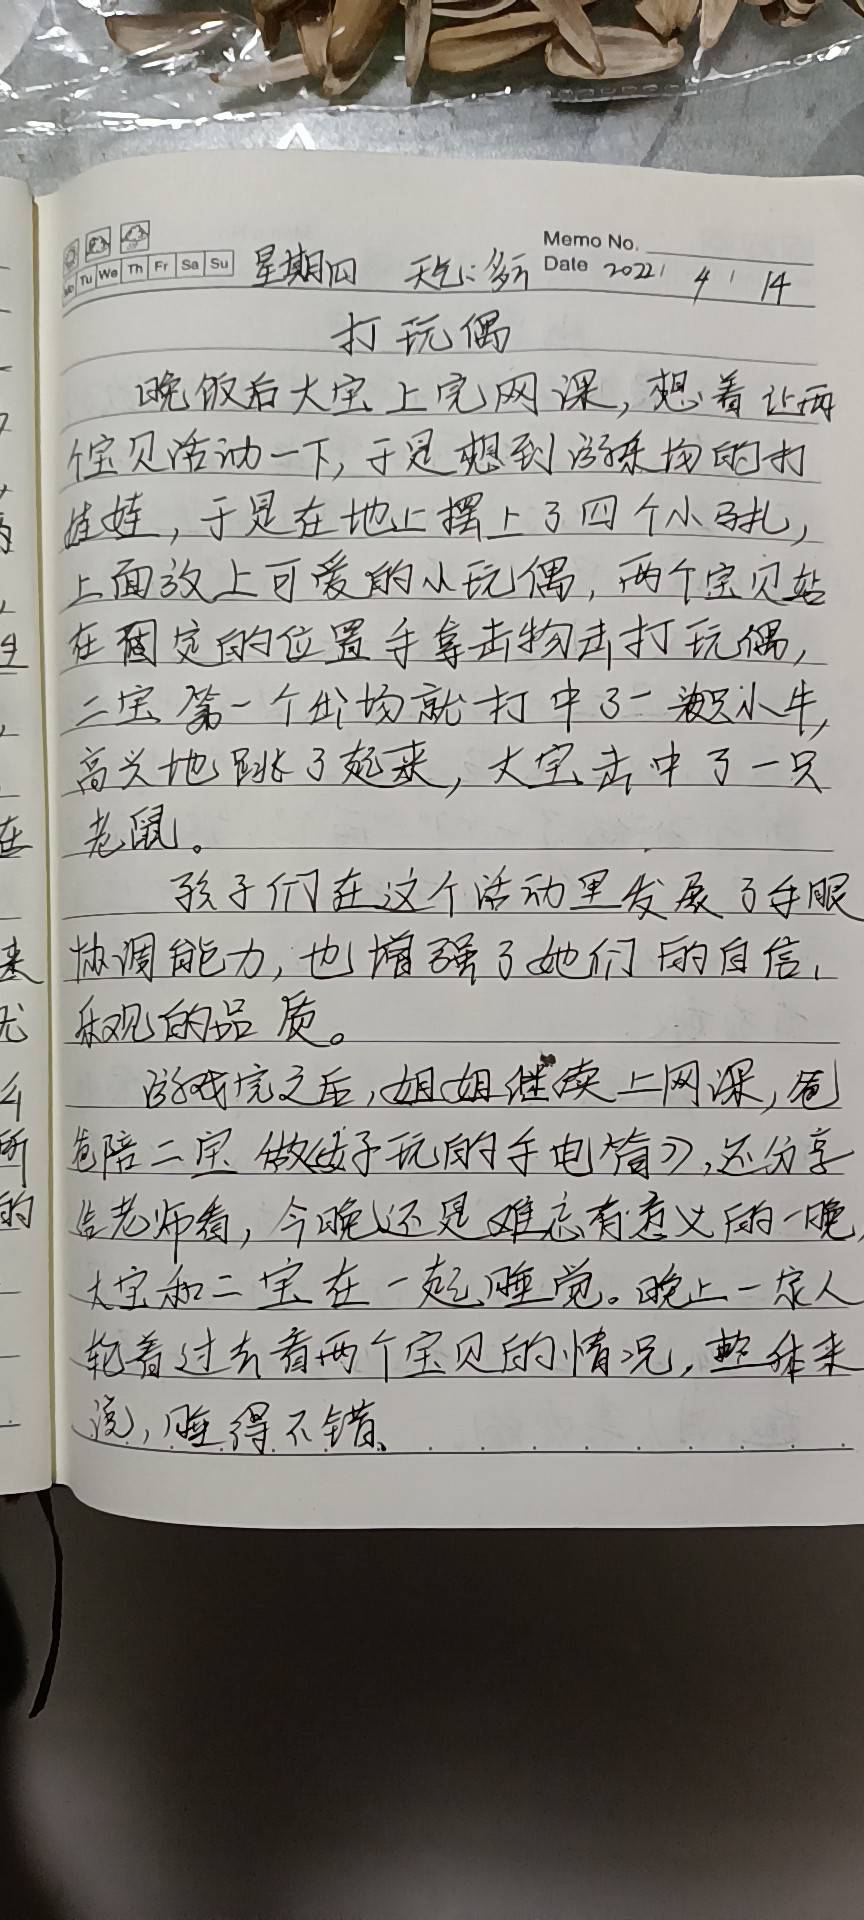 Memo No.
Mo Tu We Th Fr Sa Su 星期四 天气:多云 Date 2022 / 4 / 14
打玩偶
晚饭后大宝上完网课,想着让两
个宝贝活动一下,于是想到游乐场的打
娃娃,于是在地上摆上了四个小马扎,
上面放上可爱的小玩偶,两个宝贝站
在固定的位置手拿击物击打玩偶,
二宝第一个出场就打中了一只小牛,
高兴地跳了起来,大宝击中了一只
老鼠。
孩子们在这个活动里发展了手眼
协调能力,也增强了她们的自信,
乐观的品质。
游戏完之后,姐姐继续上网课,爸
爸陪二宝做《好玩的手电筒》,还分享
给老师看,今晚还是难忘有意义的一晚,
大宝和二宝在一起睡觉。晚上一家人
轮着过去看两个宝贝的情况,整体来
说,睡得不错、